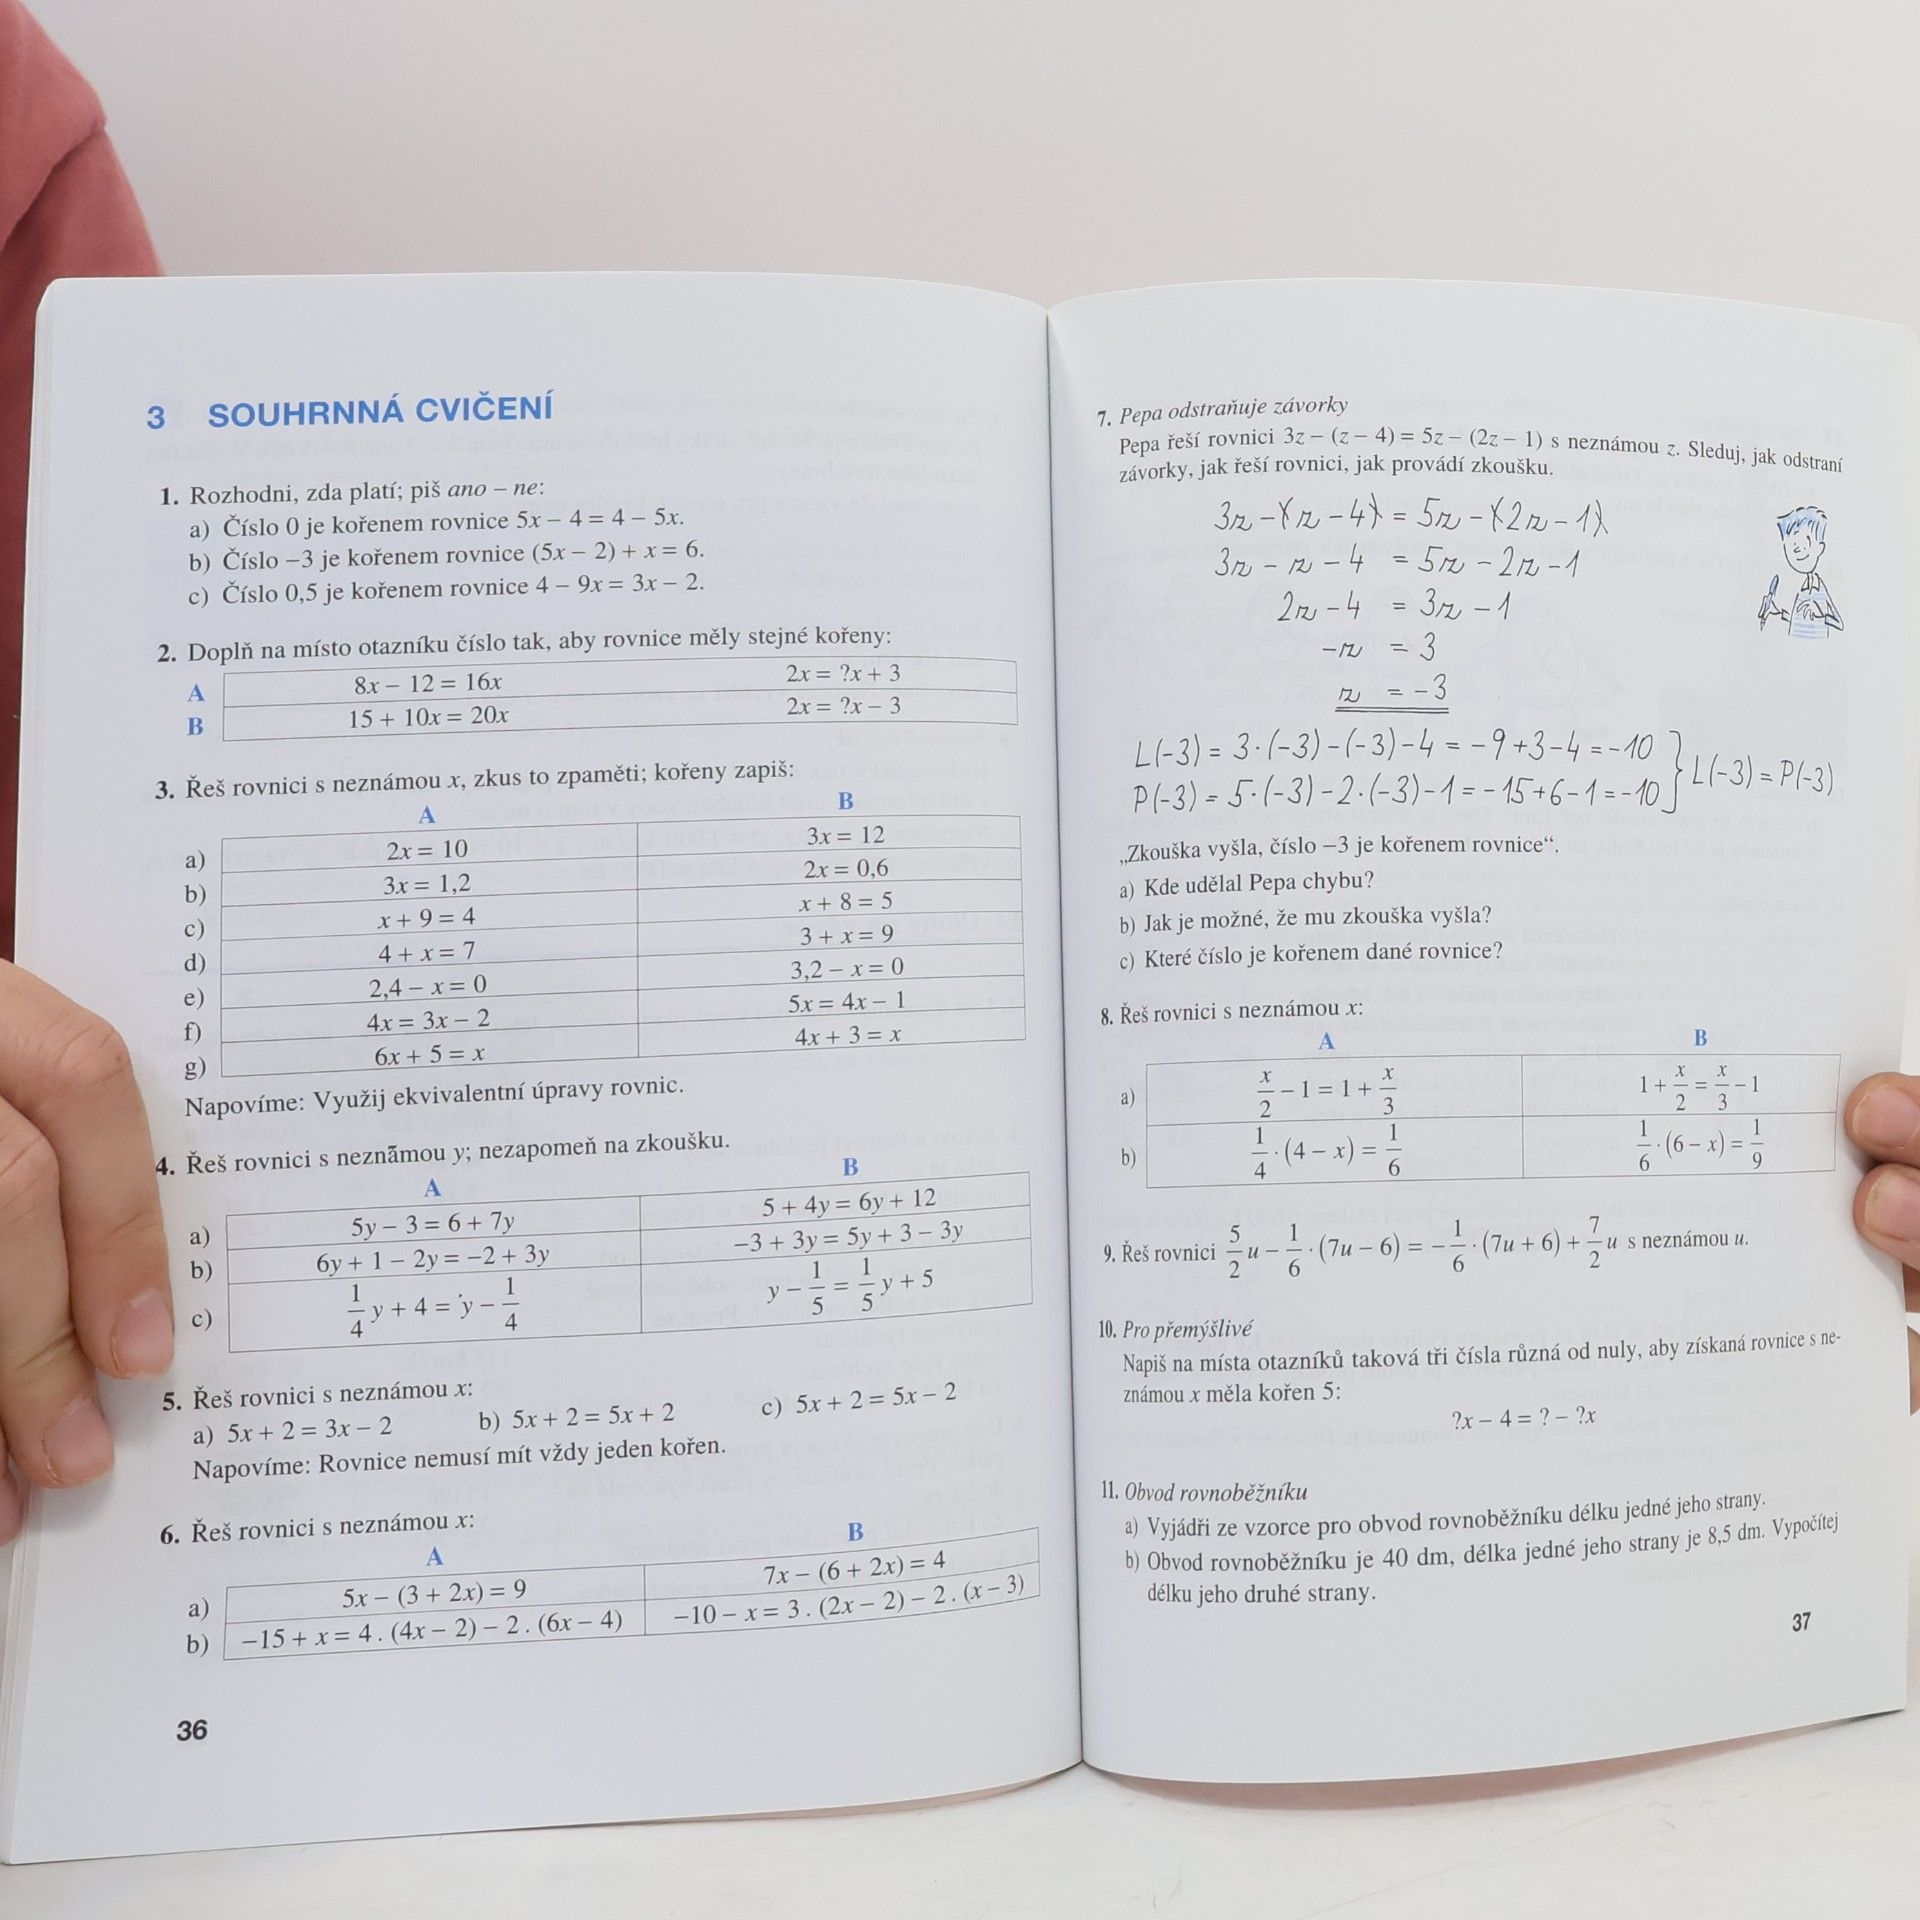 3 SOUHRNNÁ CVIČENÍ
1. Rozhodni, zda platí; piš ano – ne:
a) Číslo 0 je kořenem rovnice 5x – 4 = 4 – 5x.
b) Číslo –3 je kořenem rovnice (5x – 2) + x = 6.
c) Číslo 0,5 je kořenem rovnice 4 – 9x = 3x – 2.
2. Doplň na místo otazníku číslo tak, aby rovnice měly stejné kořeny:
A 8x – 12 = 16x 2x = ?x + 3
B 15 + 10x = 20x 2x = ?x – 3
3. Řeš rovnici s neznámou x, zkus to zpaměti; kořeny zapiš:
A B
a) 2x = 10 3x = 12
b) 3x = 1,2 2x = 0,6
c) x + 9 = 4 x + 8 = 5
d) 4 + x = 7 3 + x = 9
e) 2,4 – x = 0 3,2 – x = 0
f) 4x = 3x – 2 5x = 4x – 1
g) 6x + 5 = x 4x + 3 = x
Napovíme: Využij ekvivalentní úpravy rovnic.
4. Řeš rovnici s neznámou y; nezapomeň na zkoušku.
A B
a) 5y – 3 = 6 + 7y 5 + 4y = 6y + 12
b) 6y + 1 – 2y = –2 + 3y –3 + 3y = 5y + 3 – 3y
c) 1/4 y + 4 = y – 1/4 y – 1/5 = 1/5 y + 5
5. Řeš rovnici s neznámou x:
a) 5x + 2 = 3x – 2 b) 5x + 2 = 5x + 2 c) 5x + 2 = 5x – 2
Napovíme: Rovnice nemusí mít vždy jeden kořen.
6. Řeš rovnici s neznámou x:
A B
a) 5x – (3 + 2x) = 9 7x – (6 + 2x) = 4
b) –15 + x = 4 . (4x – 2) – 2 . (6x – 4) –10 – x = 3 . (2x – 2) – 2 . (x – 3)
36
7. Pepa odstraňuje závorky
Pepa řeší rovnici 3z – (z – 4) = 5z – (2z – 1) s neznámou z. Sleduj, jak odstraní
závorky, jak řeší rovnici, jak provádí zkoušku.
3z – (z – 4) = 5z – (2z – 1)
3z – z – 4 = 5z – 2z – 1
2z – 4 = 3z – 1
–z = 3
z = –3
L(–3) = 3·(–3) – (–3) – 4 = –9 + 3 – 4 = –10
P(–3) = 5·(–3) – 2·(–3) – 1 = –15 + 6 – 1 = –10 } L(–3) = P(–3)
„Zkouška vyšla, číslo –3 je kořenem rovnice“.
a) Kde udělal Pepa chybu?
b) Jak je možné, že mu zkouška vyšla?
c) Které číslo je kořenem dané rovnice?
8. Řeš rovnici s neznámou x:
A B
a) x/2 – 1 = 1 + x/3 1 + x/2 = x/3 – 1
b) 1/4 · (4 – x) = 1/6 1/6 · (6 – x) = 1/9
9. Řeš rovnici 5/2 u – 1/6 · (7u – 6) = – 1/6 · (7u + 6) + 7/2 u s neznámou u.
10. Pro přemýšlivé
Napiš na místa otazníků taková tři čísla různá od nuly, aby získaná rovnice s ne-
známou x měla kořen 5:
?x – 4 = ? – ?x
11. Obvod rovnoběžníku
a) Vyjádři ze vzorce pro obvod rovnoběžníku délku jedné jeho strany.
b) Obvod rovnoběžníku je 40 dm, délka jedné jeho strany je 8,5 dm. Vypočítej
délku jeho druhé strany.
37